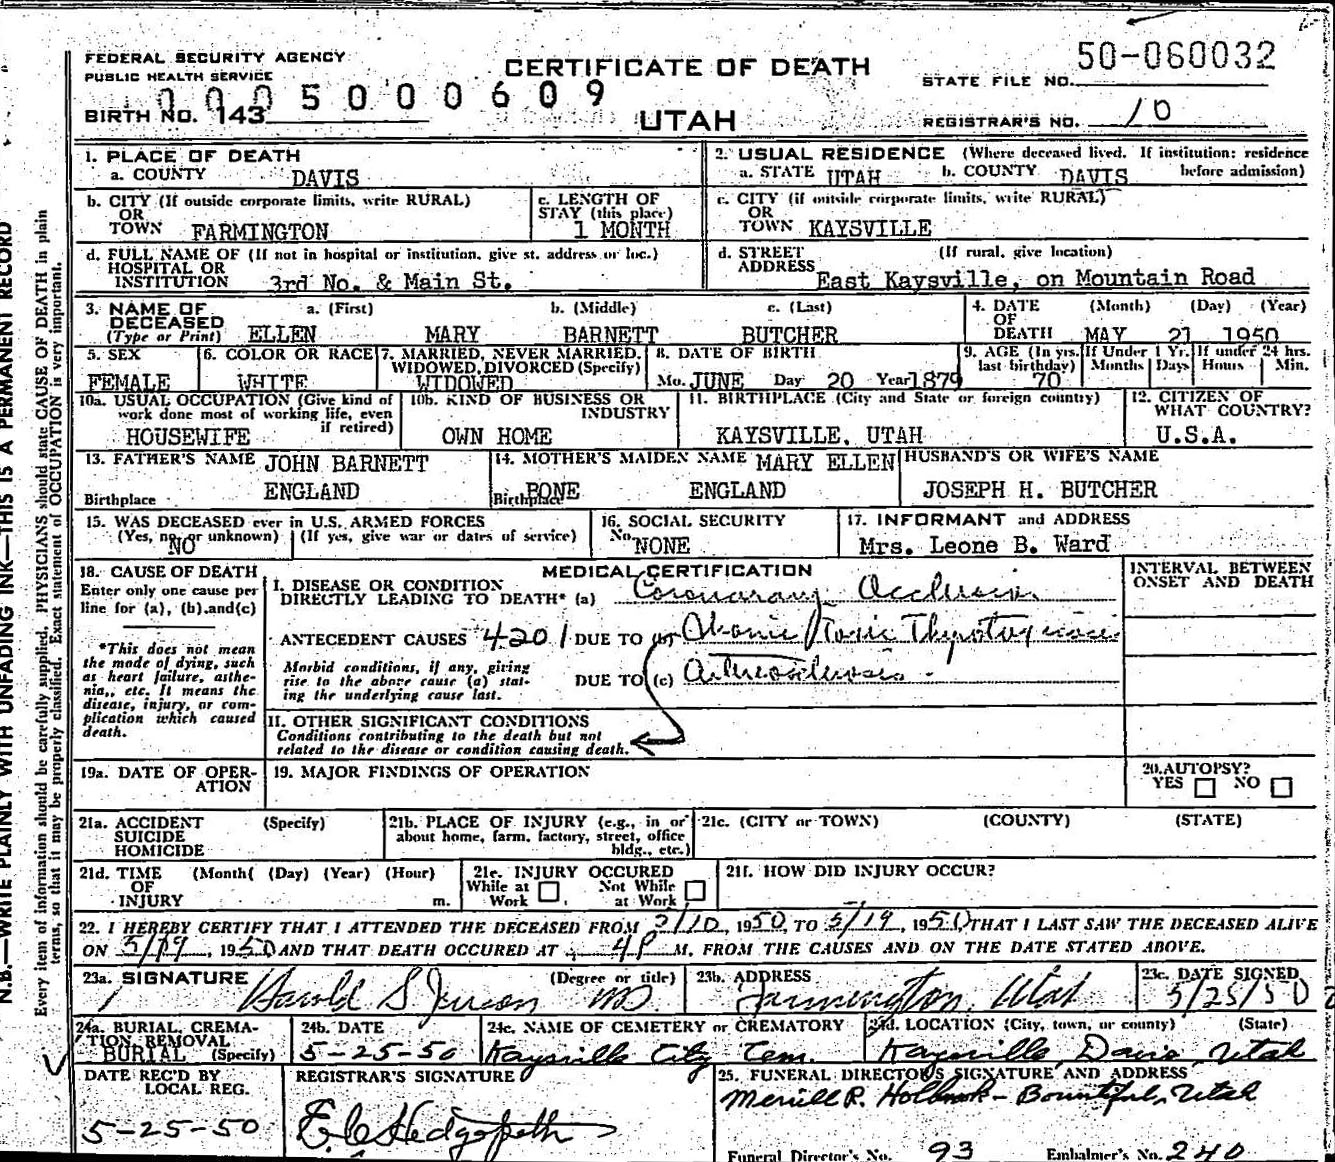 FEDERAL SECURITY AGENCY
PUBLIC HEALTH SERVICE
BIRTH NO. 143
0005000609
CERTIFICATE OF DEATH
UTAH
50-060032
STATE FILE NO.
REGISTRAR'S NO. 10
1. PLACE OF DEATH
a. COUNTY DAVIS
2. USUAL RESIDENCE (Where deceased lived. If institution: residence before admission)
a. STATE UTAH b. COUNTY DAVIS
b. CITY (If outside corporate limits, write RURAL)
OR
TOWN FARMINGTON
c. LENGTH OF
STAY (this place)
1 MONTH
c. CITY (if outside corporate limits, write RURAL)
OR
TOWN KAYSVILLE
d. FULL NAME OF (If not in hospital or institution, give st. address or loc.)
HOSPITAL OR
INSTITUTION 3rd No. & Main St.
d. STREET (If rural, give location)
ADDRESS East Kaysville, on Mountain Road
3. NAME OF a. (First) b. (Middle) c. (Last)
DECEASED
(Type or Print) ELLEN MARY BARNETT BUTCHER
4. DATE (Month) (Day) (Year)
OF
DEATH MAY 21 1950
5. SEX
FEMALE
6. COLOR OR RACE
WHITE
7. MARRIED, NEVER MARRIED,
WIDOWED, DIVORCED (Specify)
WIDOWED
8. DATE OF BIRTH
Mo. JUNE Day 20 Year 1879
9. AGE (In yrs. last birthday)
70
If Under 1 Yr.
Months Days
If under 24 hrs.
Hours Min.
10a. USUAL OCCUPATION (Give kind of
work done most of working life, even
if retired)
HOUSEWIFE
10b. KIND OF BUSINESS OR
INDUSTRY
OWN HOME
11. BIRTHPLACE (City and State or foreign country)
KAYSVILLE, UTAH
12. CITIZEN OF
WHAT COUNTRY?
U.S.A.
13. FATHER'S NAME JOHN BARNETT
Birthplace ENGLAND
14. MOTHER'S MAIDEN NAME MARY ELLEN
Birthplace BONE ENGLAND
HUSBAND'S OR WIFE'S NAME
JOSEPH H. BUTCHER
15. WAS DECEASED ever in U.S. ARMED FORCES
(Yes, no, or unknown) (If yes, give war or dates of service)
NO
16. SOCIAL SECURITY
No. NONE
17. INFORMANT and ADDRESS
Mrs. Leone B. Ward
18. CAUSE OF DEATH
Enter only one cause per
line for (a), (b) and (c)
*This does not mean
the mode of dying, such
as heart failure, asthe-
nia, etc. It means the
disease, injury, or com-
plication which caused
death.
MEDICAL CERTIFICATION
I. DISEASE OR CONDITION
DIRECTLY LEADING TO DEATH* (a) Coronary Occlusion
ANTECEDENT CAUSES 4201 DUE TO (b) Toxic
Morbid conditions, if any, giving
rise to the above cause (a) stat-
ing the underlying cause last.
DUE TO (c) Arteriosclerosis.
II. OTHER SIGNIFICANT CONDITIONS
Conditions contributing to the death but not
related to the disease or condition causing death.
INTERVAL BETWEEN
ONSET AND DEATH
19a. DATE OF OPER-
ATION
19. MAJOR FINDINGS OF OPERATION
20. AUTOPSY?
YES NO
21a. ACCIDENT (Specify)
SUICIDE
HOMICIDE
21b. PLACE OF INJURY (e.g., in or
about home, farm, factory, street, office
bldg., etc.)
21c. (CITY or TOWN) (COUNTY) (STATE)
21d. TIME (Month( (Day) (Year) (Hour)
OF
INJURY m.
21e. INJURY OCCURED
While at Work Not While at Work
21f. HOW DID INJURY OCCUR?
22. I HEREBY CERTIFY THAT I ATTENDED THE DECEASED FROM /10, 1950 TO 5/19, 1950, THAT I LAST SAW THE DECEASED ALIVE
ON 5/19, 1950 AND THAT DEATH OCCURED AT 4P M. FROM THE CAUSES AND ON THE DATE STATED ABOVE.
23a. SIGNATURE (Degree or title)
Harold S Jenson MD
23b. ADDRESS
Farmington, Utah
23c. DATE SIGNED
5/25/50
24a. BURIAL, CREMA-
TION, REMOVAL
BURIAL (Specify)
24b. DATE
5-25-50
24c. NAME OF CEMETERY or CREMATORY
Kaysville City Cem.
24d. LOCATION (City, town, or county) (State)
Kaysville, Davis, Utah
DATE REC'D BY
LOCAL REG.
5-25-50
REGISTRAR'S SIGNATURE
Hedgepeth
25. FUNERAL DIRECTOR'S SIGNATURE AND ADDRESS
Merrill R. Holbrook - Bountiful, Utah
Funeral Director's No. 93 Embalmer's No. 240
N.B.—WRITE PLAINLY WITH UNFADING INK—THIS IS A PERMANENT RECORD
Every item of information should be carefully supplied. PHYSICIANS should state CAUSE OF DEATH in plain
terms, so that it may be properly classified. Exact statement of OCCUPATION is very important.